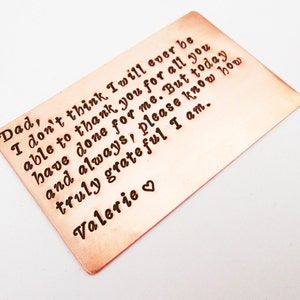 Dad,
I don't think I will ever be
able to thank you for all you
have done for me. But today
and always, please know how
truly grateful I am.
Valerie ♡